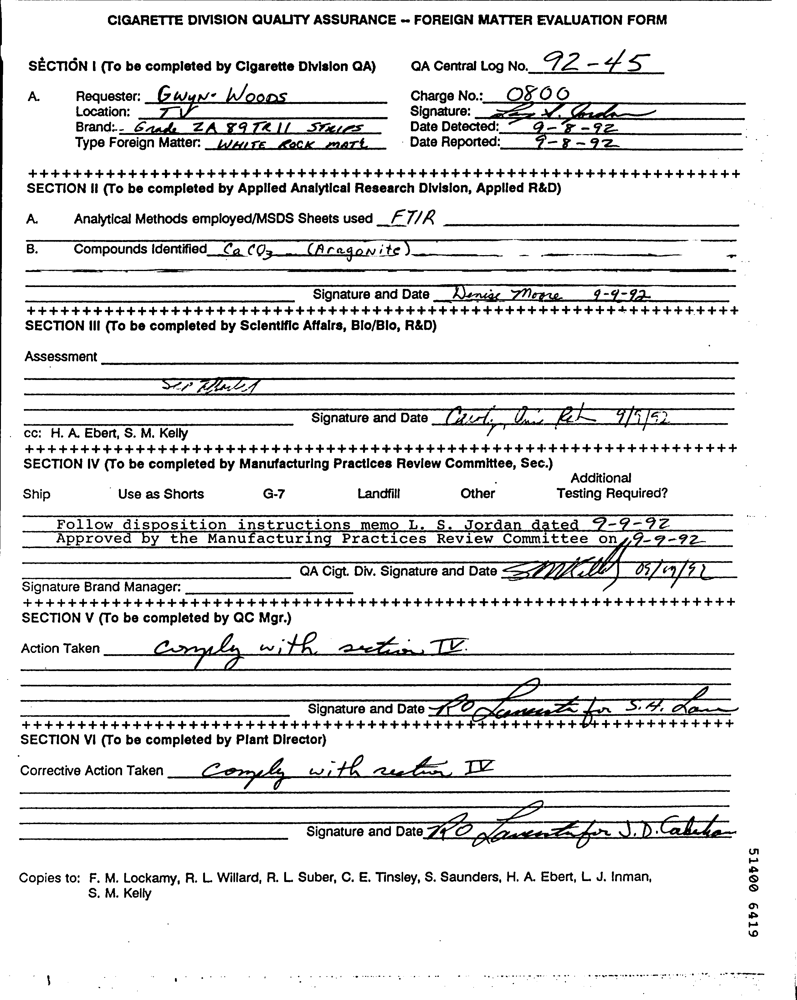 CIGARETTE DIVISION QUALITY ASSURANCE -- FOREIGN MATTER EVALUATION FORM
SECTION I (To be completed by Cigarette Division QA) QA Central Log No. 92-45
A. Requester: GWYN WOODS Charge No.: 0800
Location: TV Signature:
Brand: Grade ZA 89TR11 STRIPS Date Detected: 9-8-92
Type Foreign Matter: WHITE ROCK MAT'L Date Reported: 9-8-92
++++++++++++++++++++++++++++++++++++++++++++++++++++++++++++++++++++++
SECTION II (To be completed by Applied Analytical Research Division, Applied R&D)
A. Analytical Methods employed/MSDS Sheets used FTIR
B. Compounds Identified CaCO3 (Aragonite)
Signature and Date Denise Moore 9-9-92
++++++++++++++++++++++++++++++++++++++++++++++++++++++++++++++++++++++
SECTION III (To be completed by Scientific Affairs, Bio/Bio, R&D)
Assessment
Signature and Date 9/9/92
cc: H. A. Ebert, S. M. Kelly
++++++++++++++++++++++++++++++++++++++++++++++++++++++++++++++++++++++
SECTION IV (To be completed by Manufacturing Practices Review Committee, Sec.)
Ship Use as Shorts G-7 Landfill Other Additional Testing Required?
Follow disposition instructions memo L. S. Jordan dated 9-9-92
Approved by the Manufacturing Practices Review Committee on 9-9-92
QA Cigt. Div. Signature and Date SMKelly
Signature Brand Manager:
++++++++++++++++++++++++++++++++++++++++++++++++++++++++++++++++++++++
SECTION V (To be completed by QC Mgr.)
Action Taken Comply with section IV.
Signature and Date for S.H.
++++++++++++++++++++++++++++++++++++++++++++++++++++++++++++++++++++++
SECTION VI (To be completed by Plant Director)
Corrective Action Taken Comply with section IV
Signature and Date for J.D.
Copies to: F. M. Lockamy, R. L. Willard, R. L. Suber, C. E. Tinsley, S. Saunders, H. A. Ebert, L. J. Inman,
S. M. Kelly
51400 6419